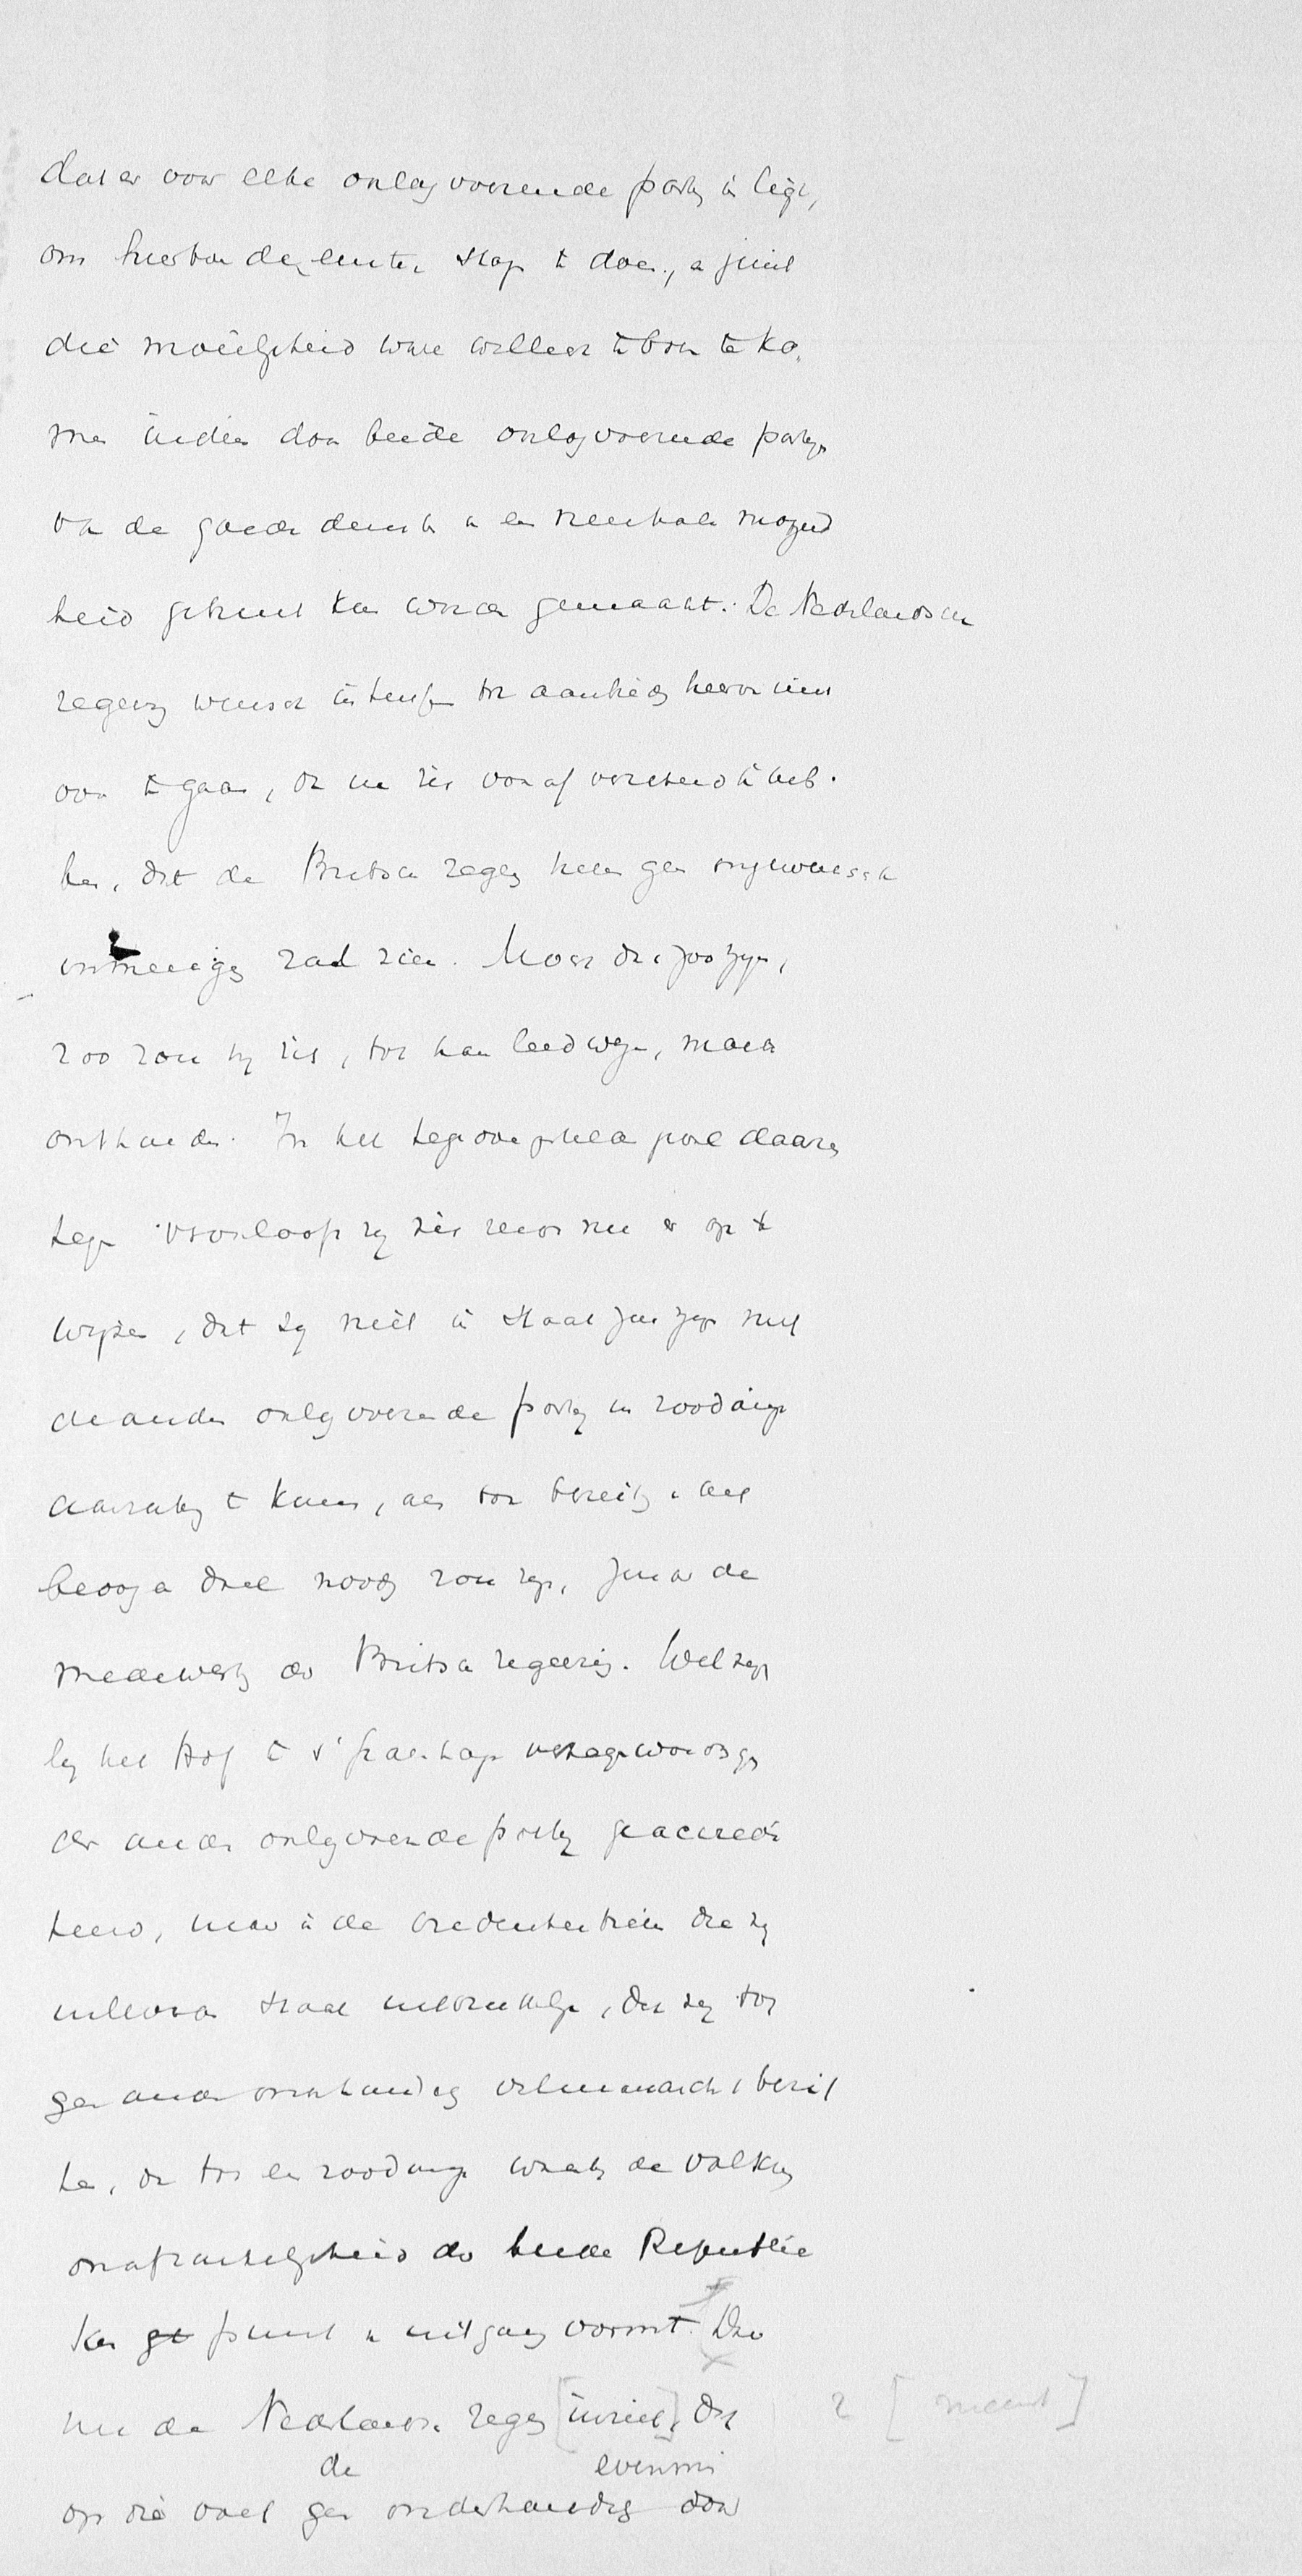 dat er voor elke oorlogvoerende party in ligt,
om hiertoe den eersten stap te doen, en juist
die moeielijkheid ware willicht te boven te ko-
men indien door beide oorlogvoerende partijen
van de goede diensten van een neutrale mogend
heid gebruik kan worden gemaakt. De Nederlandsche
regeering wenscht intusschen tot aanbieding hiervan niet
over te gaan, dan na zich vooraf verzekerd te heb-
ben, dat de Britsche regeering hierin geen ongewenschte
inmenging zal zien. Mocht dit zoo zijn,
zoo zou zij zich, tot haar leedwezen, moeten
onthouden. In het tegenovergestelde geval daaren
tegen veroorlooft zij zich reeds nu er op te
wijzen, dat zij niet in staat zou zijn met
de andere oorlogvoerende partij in zoodanige
aanraking te komen, als tot bereiking van het
beoogde doel noodig zou zijn, zonder de
medewerking der Britsche regeering. Wel zijn
bij het Hof te 's Gravenhage vertegenwoordigers
der andere oorlogvoerende partij geaccredi
teerd, maar in de credentialen die zij
inleverden staat uitdrukkelijk, dat zij tot
geen andere onderhandeling volmacht bezit
ten, dan tot een zoodanige waarbij de volkomen
onafhankelijkheid der beide Republie
ken punt van uitgang vormt. Daar
nu de Nederlandsche regeering [inziet], dat [meent]
de evenmin
op die voet geen onderhandeling door